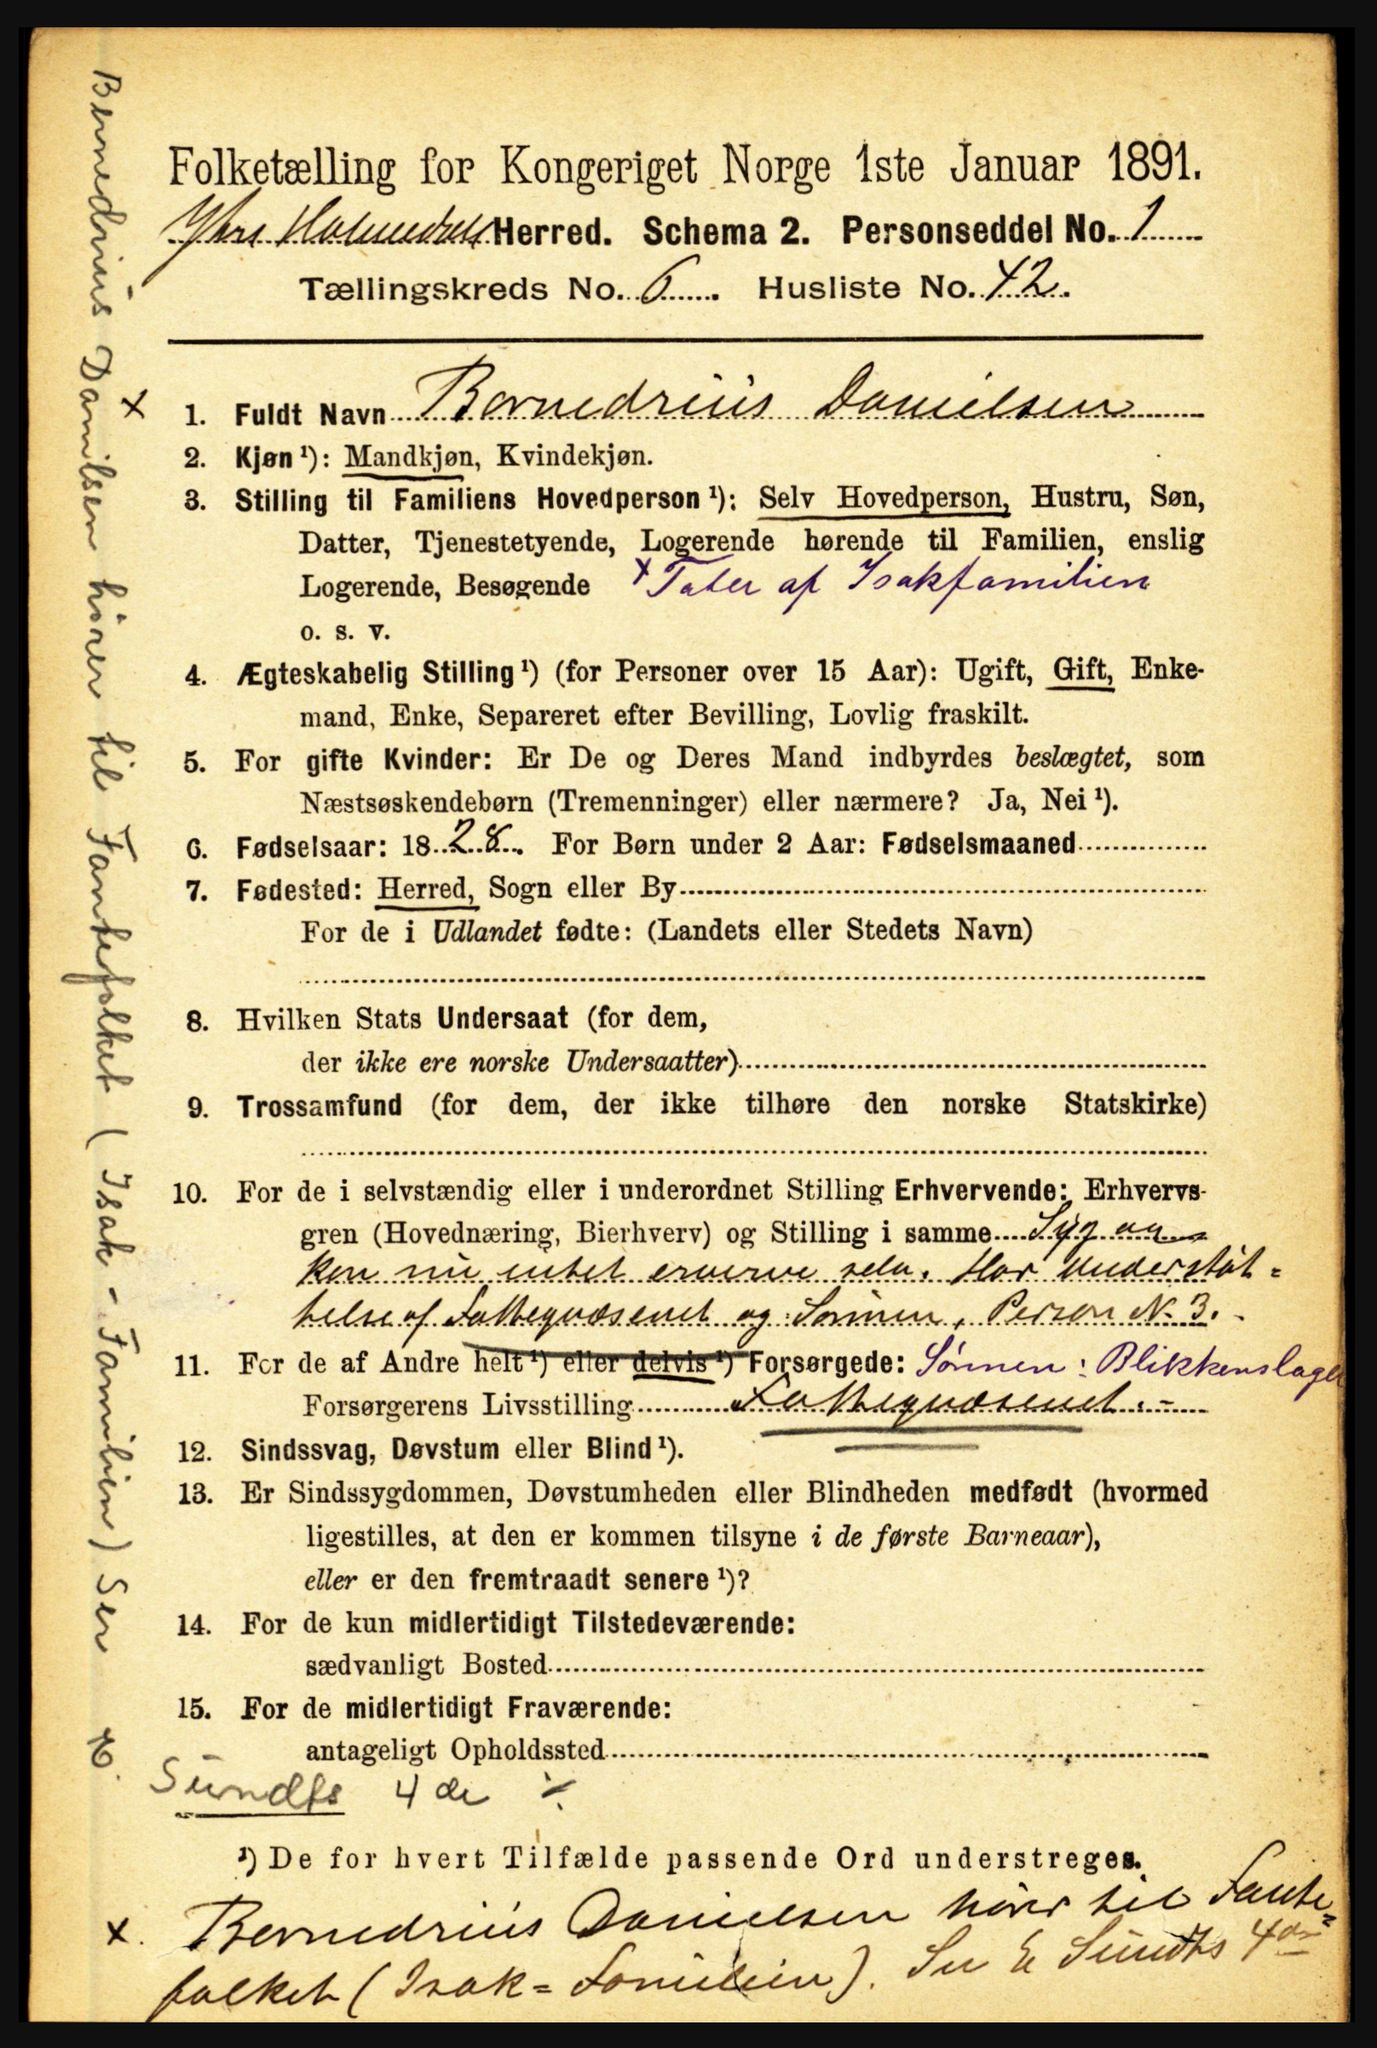 Folketælling for Kongeriget Norge 1ste Januar 1891.
Ytre Holmedals Herred. Schema 2. Personseddel No. 1
Tællingskreds No. 6. Husliste No. 42.
1. Fuldt Navn Bernedrius Danielsen
2. Kjøn ¹): Mandkjøn, Kvindekjøn.
3. Stilling til Familiens Hovedperson ¹): Selv Hovedperson, Hustru, Søn,
Datter, Tjenestetyende, Logerende hørende til Familien, enslig
Logerende, Besøgende x Tater af Isakfamilien
o. s. v.
4. Ægteskabelig Stilling ¹) (for Personer over 15 Aar): Ugift, Gift, Enke-
mand, Enke, Separeret efter Bevilling, Lovlig fraskilt.
5. For gifte Kvinder: Er De og Deres Mand indbyrdes beslægtet, som
Næstsøskendebørn (Tremenninger) eller nærmere? Ja, Nei ¹).
6. Fødselsaar: 1828. For Børn under 2 Aar: Fødselsmaaned
7. Fødested: Herred, Sogn eller By
For de i Udlandet fødte: (Landets eller Stedets Navn)
8. Hvilken Stats Undersaat (for dem,
der ikke ere norske Undersaatter)
9. Trossamfund (for dem, der ikke tilhøre den norske Statskirke)
10. For de i selvstændig eller i underordnet Stilling Erhvervende: Erhvervs-
gren (Hovednæring, Bierhverv) og Stilling i samme Syg og
kan nu intet erverve selv. Har Understöt=
telse af Fattigvæsenet og Sønnen, Person N. 3.
11. For de af Andre helt ¹) eller delvis ¹) Forsørgede: Sönnen: Blikkenslager
Forsørgerens Livsstilling Fattigvæsenet.-
12. Sindssvag, Døvstum eller Blind ¹).
13. Er Sindssygdommen, Døvstumheden eller Blindheden medfødt (hvormed
ligestilles, at den er kommen tilsyne i de første Barneaar),
eller er den fremtraadt senere ¹)?
14. For de kun midlertidigt Tilstedeværende:
sædvanligt Bosted
15. For de midlertidigt Fraværende:
antageligt Opholdssted
¹) De for hvert Tilfælde passende Ord understreges.
x. Bernedrius Danielsen hörer til Fante=
folket (Isak=Familien). Se E Sundts 4de
x
Bernedrius Danilsen hörer til Fantefolket (Isak-Familien) Se E.
Sundts 4 de